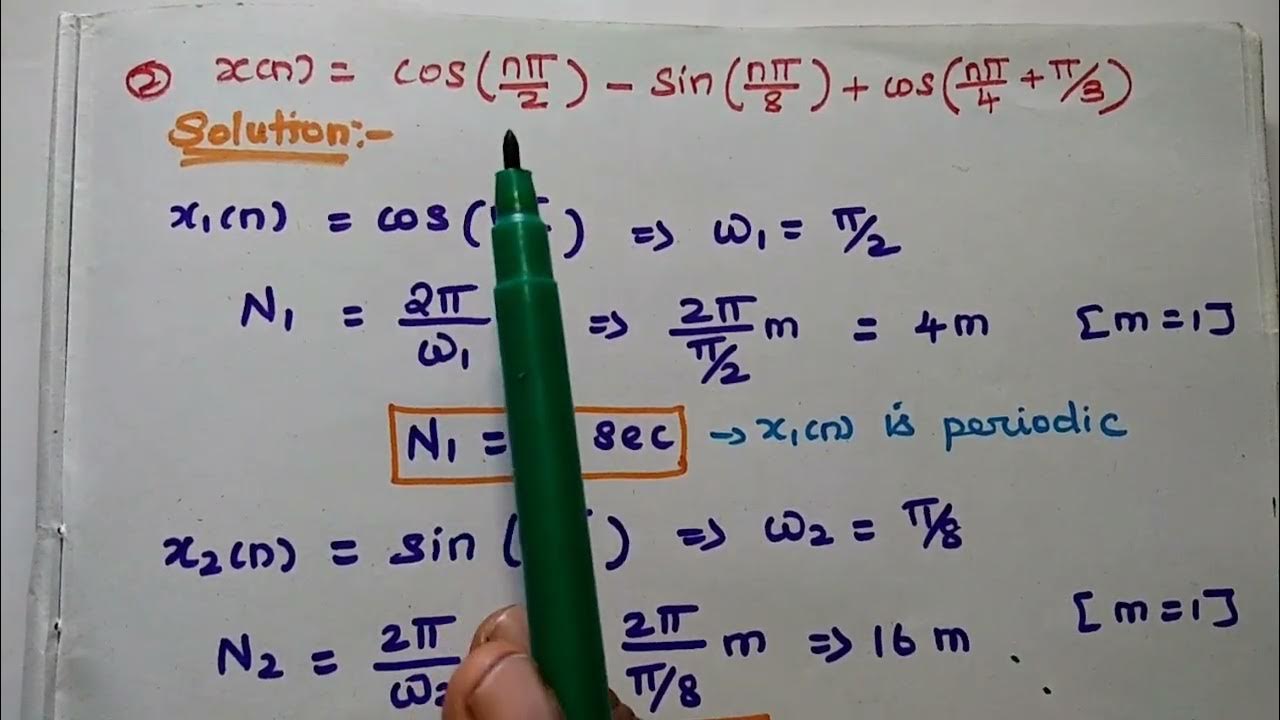 ② x(n) = cos(nπ/2) - sin(nπ/8) + cos(nπ/4 + π/3)
Solution:-
x₁(n) = cos( ) ⇒ ω₁ = π/2
N₁ = 2π/ω₁ ⇒ 2π/(π/2) m = 4m [m=1]
N₁ = sec → x₁(n) is periodic
x₂(n) = sin( ) ⇒ ω₂ = π/8
N₂ = 2π/ω₂ 2π/(π/8) m ⇒ 16 m . [m=1]